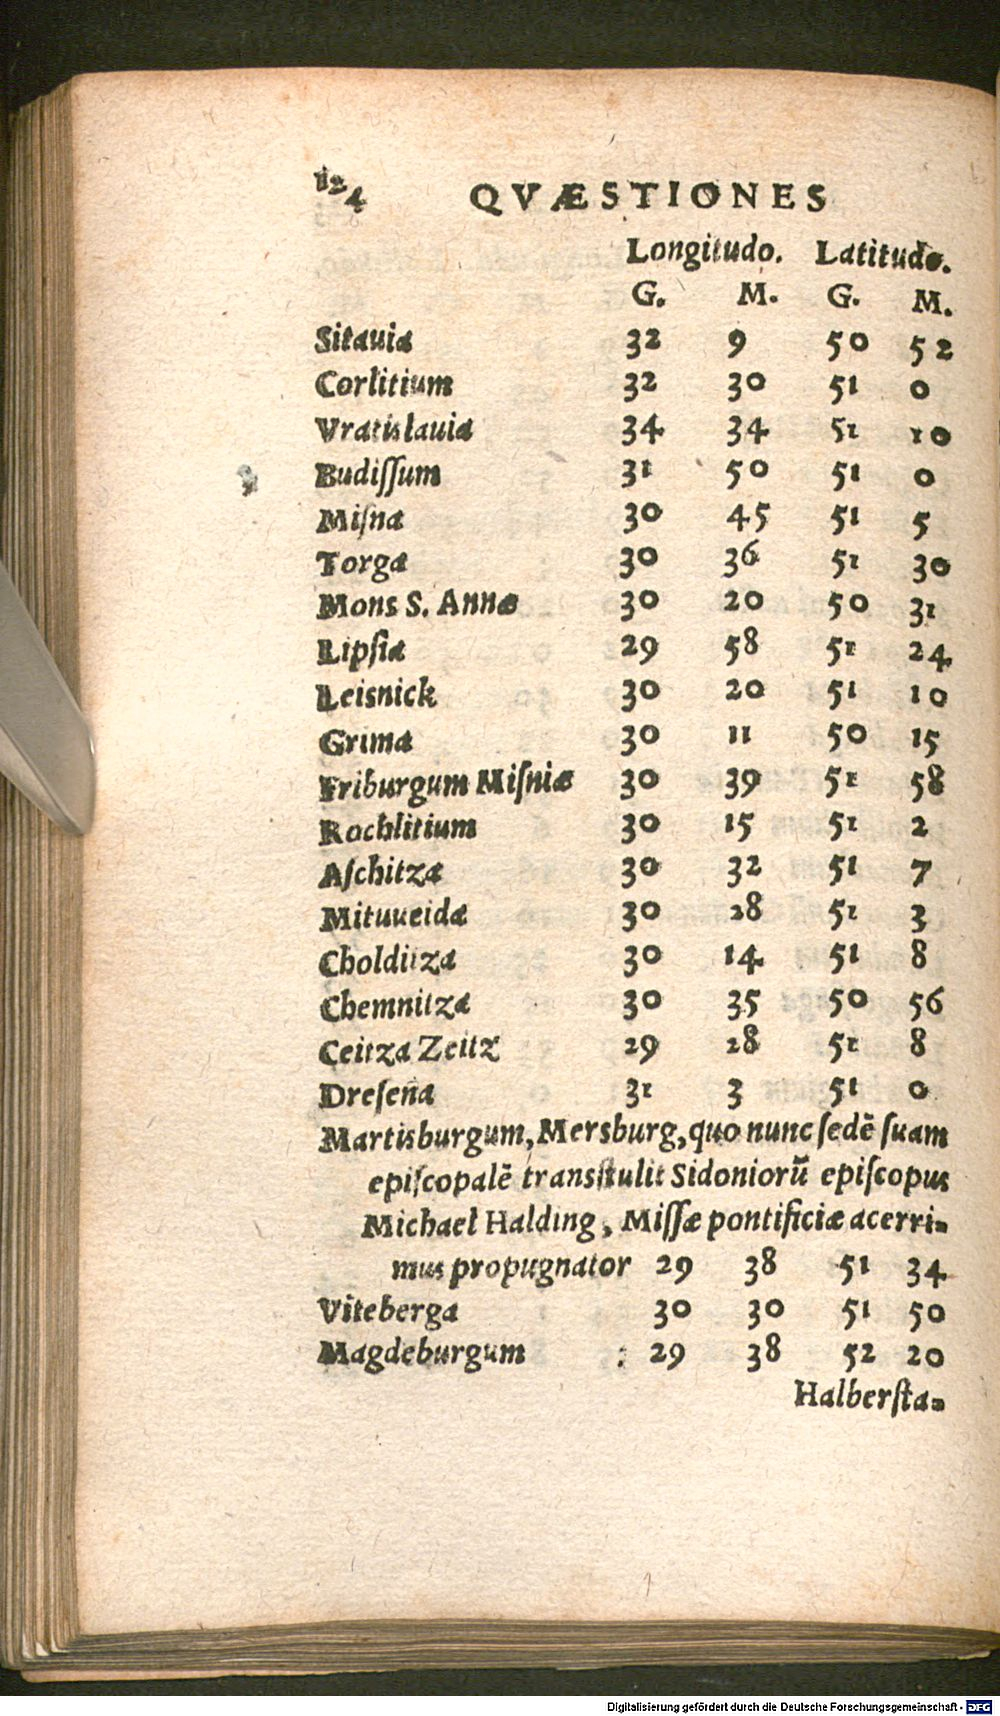 124 QVÆSTIONES
Longitudo. Latitudo.
G. M. G. M.
Sitauia 32 9 50 52
Corlitium 32 30 51 0
Vratislauia 34 34 51 10
Budiſſum 31 50 51 0
Miſna 30 45 51 5
Torga 30 36 51 30
Mons S. Annæ 30 20 50 31
Lipſia 29 58 51 24
Leisnick 30 20 51 10
Grima 30 11 50 15
Friburgum Miſniæ 30 39 51 58
Rochlitium 30 15 51 2
Aſchitza 30 32 51 7
Mituueida 30 28 51 3
Cholditza 30 14 51 8
Chemnitza 30 35 50 56
Ceitza Zeitz 29 28 51 8
Dreſena 31 3 51 0
Martisburgum, Mersburg, quo nunc ſedē ſuam
epiſcopalē transſtulit Sidoniorū epiſcopus
Michael Halding, Miſſæ pontificiæ acerri-
mus propugnator 29 38 51 34
Viteberga 30 30 51 50
Magdeburgum : 29 38 52 20
Halberſta-
Digitalisierung gefördert durch die Deutsche Forschungsgemeinschaft - DFG